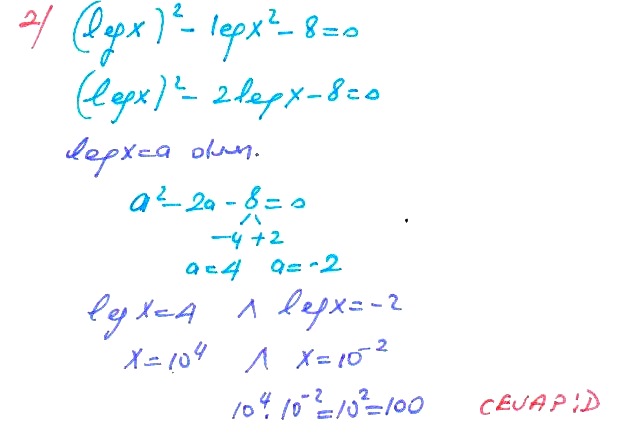 2/ (logx)² - logx² - 8 = 0
(logx)² - 2logx - 8 = 0
logx = a olsun.
a² - 2a - 8 = 0
-4 +2
a = 4 a = -2
log x = 4 ∧ logx = -2
x = 10⁴ ∧ x = 10⁻²
10⁴. 10⁻² = 10² = 100 CEVAP: D